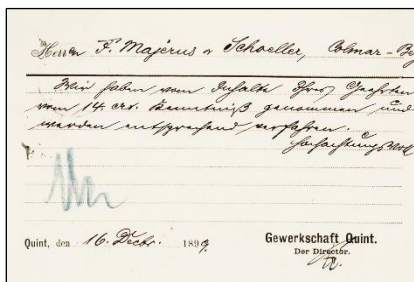 Herren F. Majerus & Schoeller, Colmar-Be
Wir haben vom Inhalte Ihres Geehrten
vom 14. crt. Kenntniß genommen und
werden entsprechend verfahren.
Hochachtungsvoll
Quint, den 16. Decbr. 1899.
Gewerkschaft Quint.
Der Director.